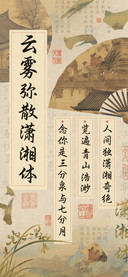 云雾弥散潇湘体
人间独潇湘奇绝
览遍青山浩渺
念你是三分泉与七分月